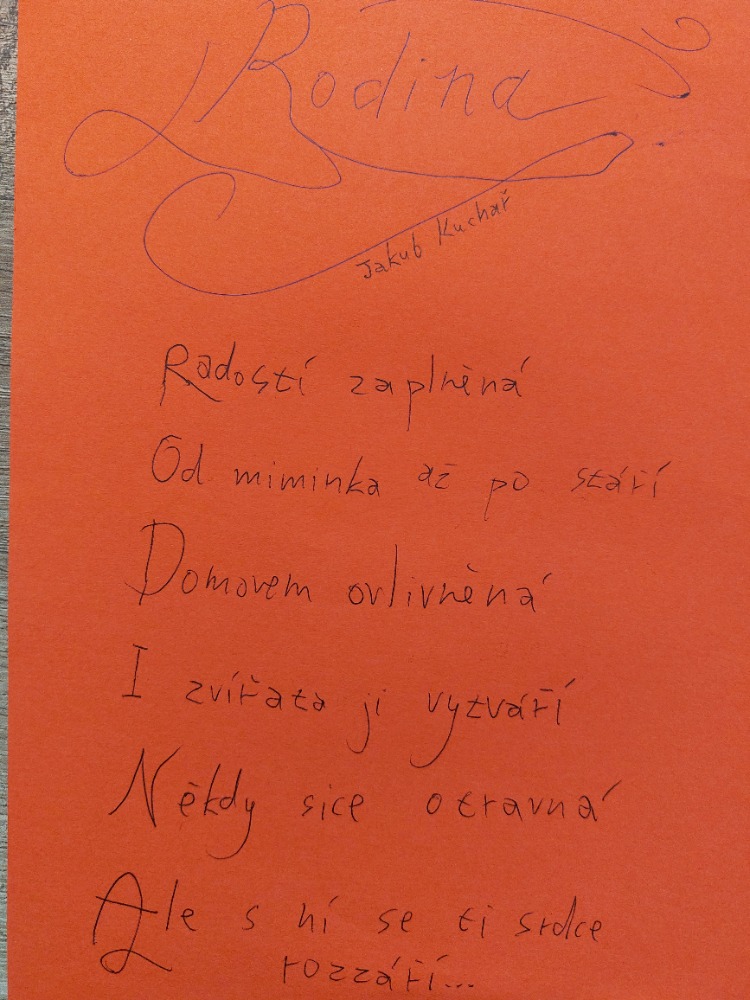 Rodina
Jakub Kuchař
Radostí zaplněná
Od miminka až po stáří
Domovem ovlivněná
I zvířata ji vytváří
Někdy sice otravná
Ale s ní se ti srdce
rozzáří...